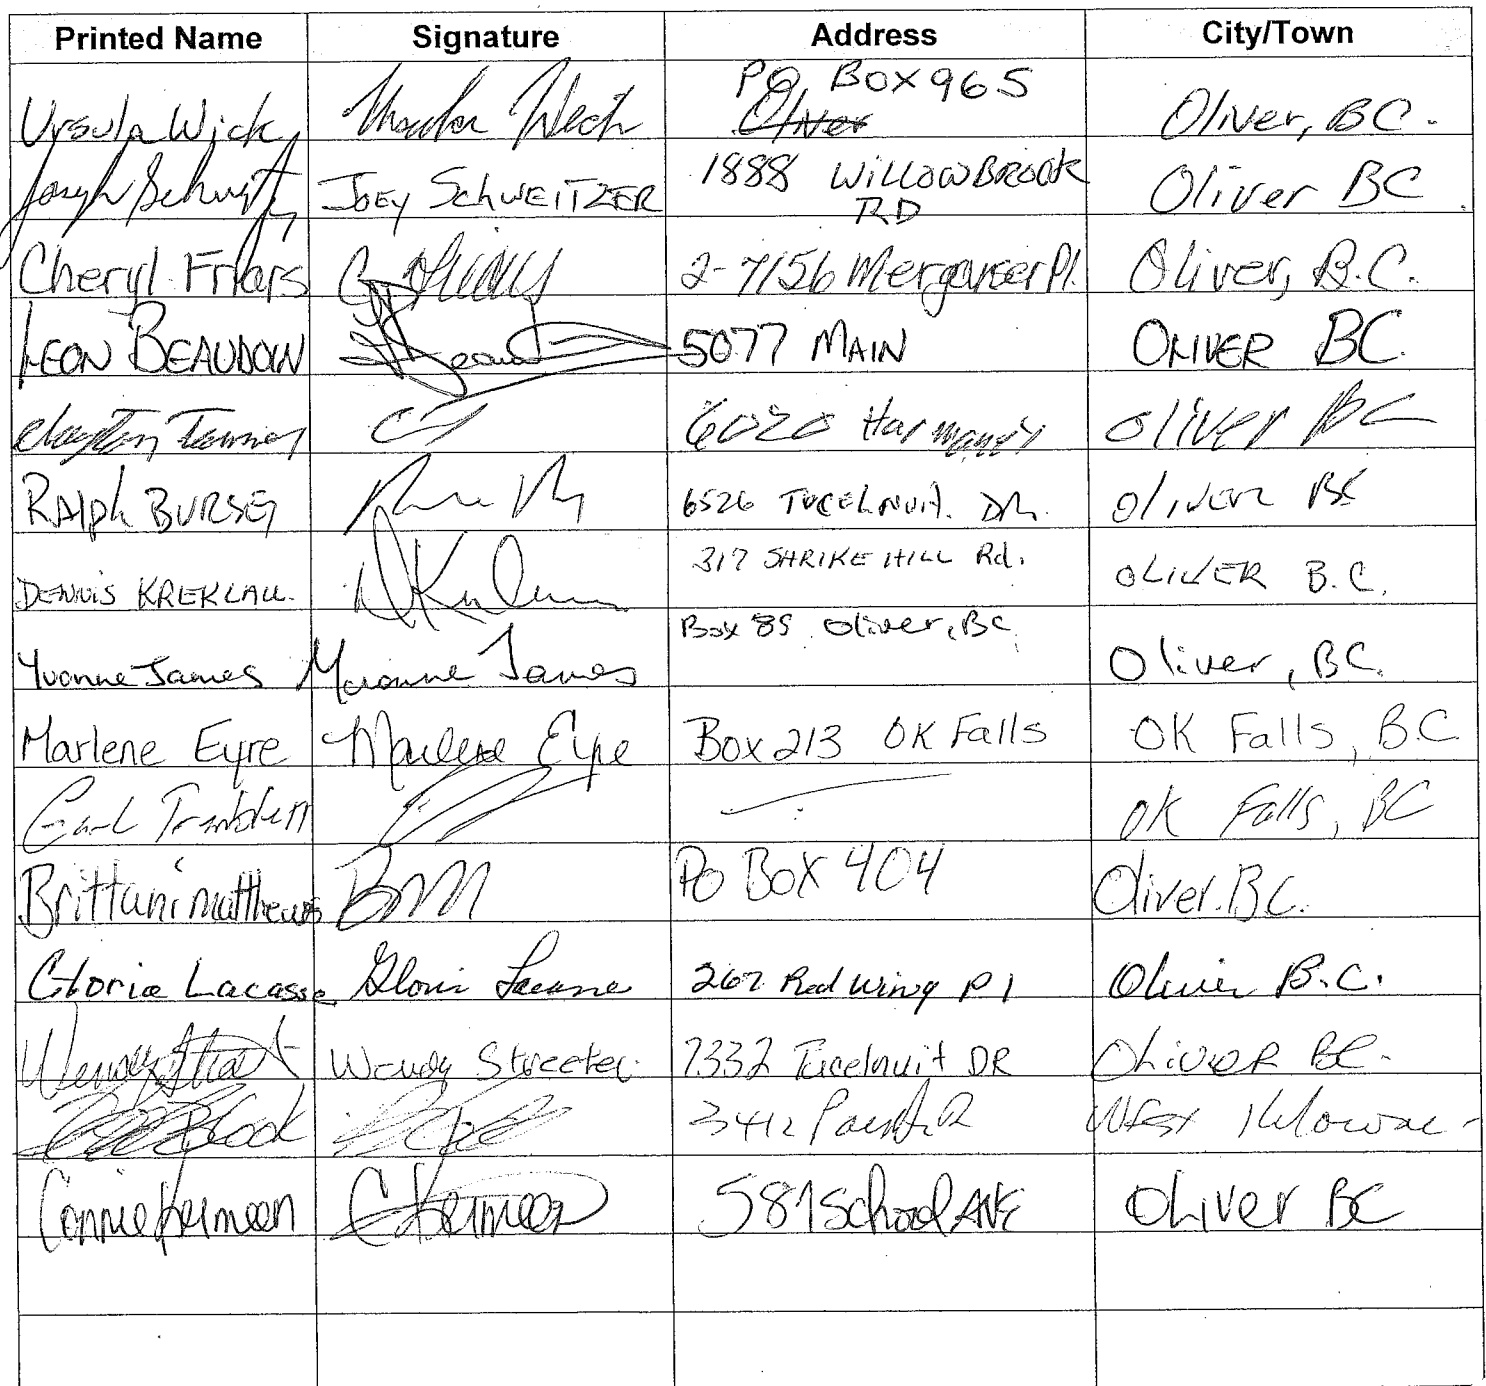 Printed Name Signature Address City/Town
Ursula Wick Ursula Wick PO Box 965 Oliver, BC.
Oliver
Joseph JOEY SCHWEITZER 1888 WILLOWBROOK Oliver BC
RD
Cheryl Friars 2-7156 Merganser Pl. Oliver, B.C.
LEON BEAUDOIN 5077 MAIN OLIVER BC.
Clayton 6020 Oliver BC
RAlph BURSEY 6526 TUCELNUIT DR. OliVER BC
DENNIS KREKLAU. 317 SHRIKE HILL Rd. OLIVER B.C.
Box 85 Oliver, BC
Yvonne James Yvonne James Oliver, BC.
Marlene Eyre Marlene Eyre Box 213 OK Falls OK Falls, B.C
OK Falls, BC
Brittani Matthews BM PO BOX 404 Oliver. BC.
Gloria Lacasse Gloria Lacasse 267 Red Wing Pl Oliver B.C.
Wendy Wendy Streeter 7332 Tucelnuit DR OLiveR BC.
3412 West Kelowna
Connie Kermeen C Kermeen 581 School AVE OLiver BC